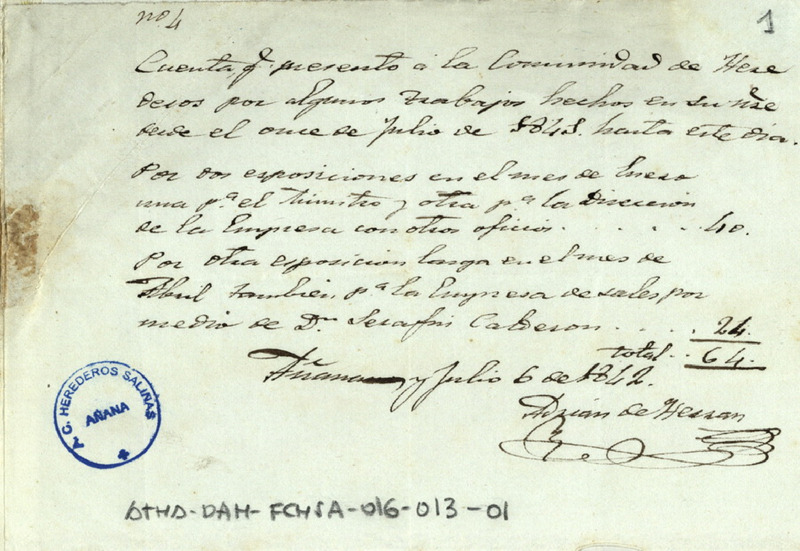 nº 4
1
Cuenta q.e presento a la Comunidad de Here
deros por algunos trabajos hechos en su nre
desde el once de Julio de 1841. hasta este dia.
Por dos exposiciones en el mes de Enero
una p.a el Ministro y otra p.a la Direccion
de la Empresa con otros oficios . . . . . . 40.
Por otra exposicion larga en el mes de
Abril tambien p.a la Empresa de sales por
medio de D.n Serafin Calderon . . . . . 24.
total . . 64.
Añana y Julio 6 de 1842.
Adrian de Herran
C. HEREDEROS SALINAS
AÑANA
ATHA-DAH-FCHSA-016-013-01